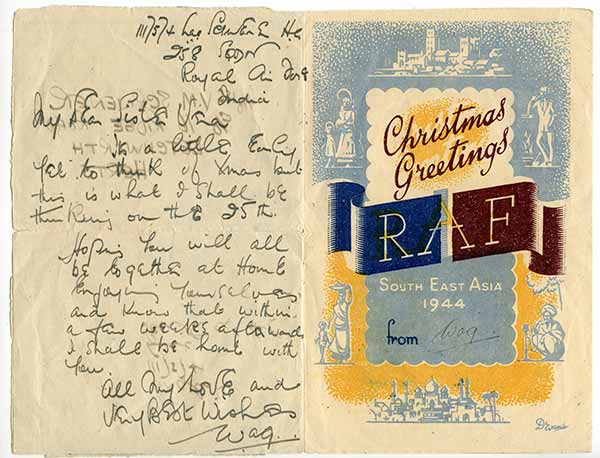 258 Sqdn
Royal Air Force
India
My Dear Sister
Is a little Early
yet to think of Xmas but
this is what I shall be
thinking on the 25th.
Hoping You will all
be together at Home
Enjoying Yourselves
and Know that within
a few weeks afterwards
I shall be home with
You.
All My Love and
Very Best Wishes
Wag.
Christmas
Greetings
RAF
SOUTH EAST ASIA
1944
from Wag.
D Evans